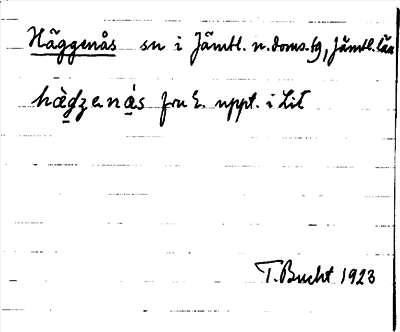 Häggenås sn i Jämtl. n. doms. tg, Jämtl. län
hä̀gʒenás fru E. uppt. i Lit
T. Bucht 1923